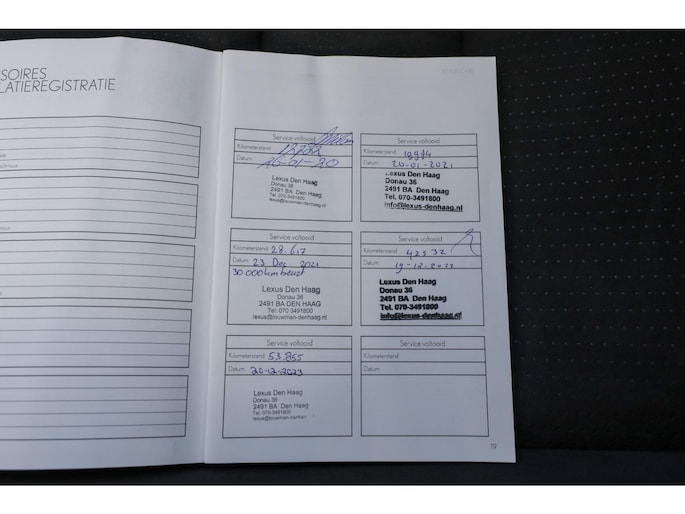 SSOIRES
LATIEREGISTRATIE
Service voltooid
Kilometerstand:
Datum:
Lexus Den Haag
Donau 36
2491 BA Den Haag
Tel. 070-3491800
lexus@louwman-denhaag.nl
Service voltooid
Kilometerstand:
Datum: 20-01-2021
Lexus Den Haag
Donau 36
2491 BA Den Haag
Tel. 070-3491800
info@lexus-denhaag.nl
Service voltooid
Kilometerstand: 28.617
Datum: 23 Dec 2021
30 000 km beurt
Lexus Den Haag
Donau 36
2491 BA DEN HAAG
Tel. 070-3491800
lexus@louwman-denhaag.nl
Service voltooid
Kilometerstand: 42532
Datum: 19-12-2022
Lexus Den Haag
Donau 36
2491 BA Den Haag
Tel. 070-3491800
info@lexus-denhaag.nl
Service voltooid
Kilometerstand: 53.855
Datum: 20-12-2023
Lexus Den Haag
Donau 36
2491 BA Den Haag
Tel. 070-3491800
lexus@louwman-denhaag
Service voltooid
Kilometerstand:
Datum:
19